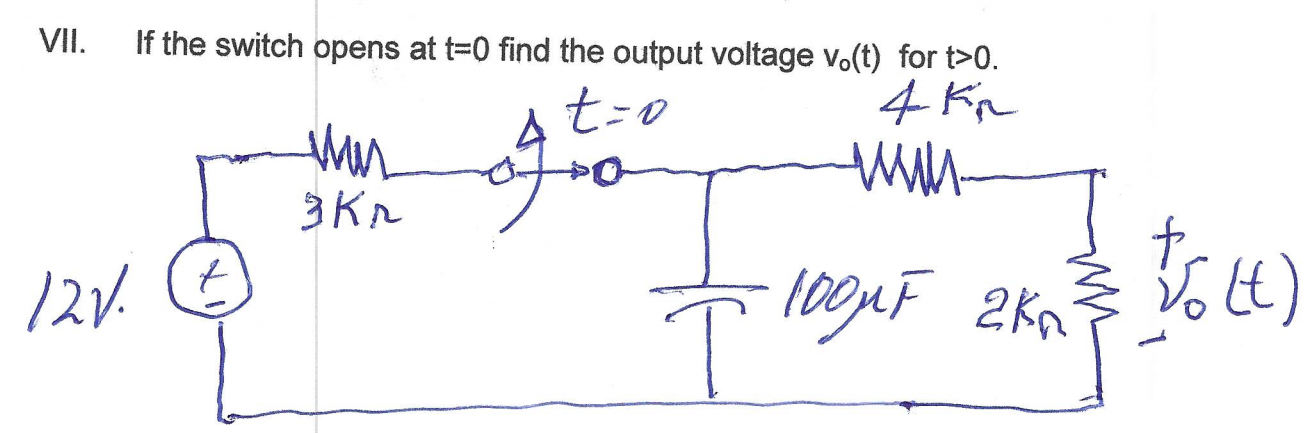 VII. If the switch opens at t=0 find the output voltage vₒ(t) for t>0.
t=0
4 KΩ
3KΩ
12V.
+
-
100μF
2KΩ
+
Vo(t)
-